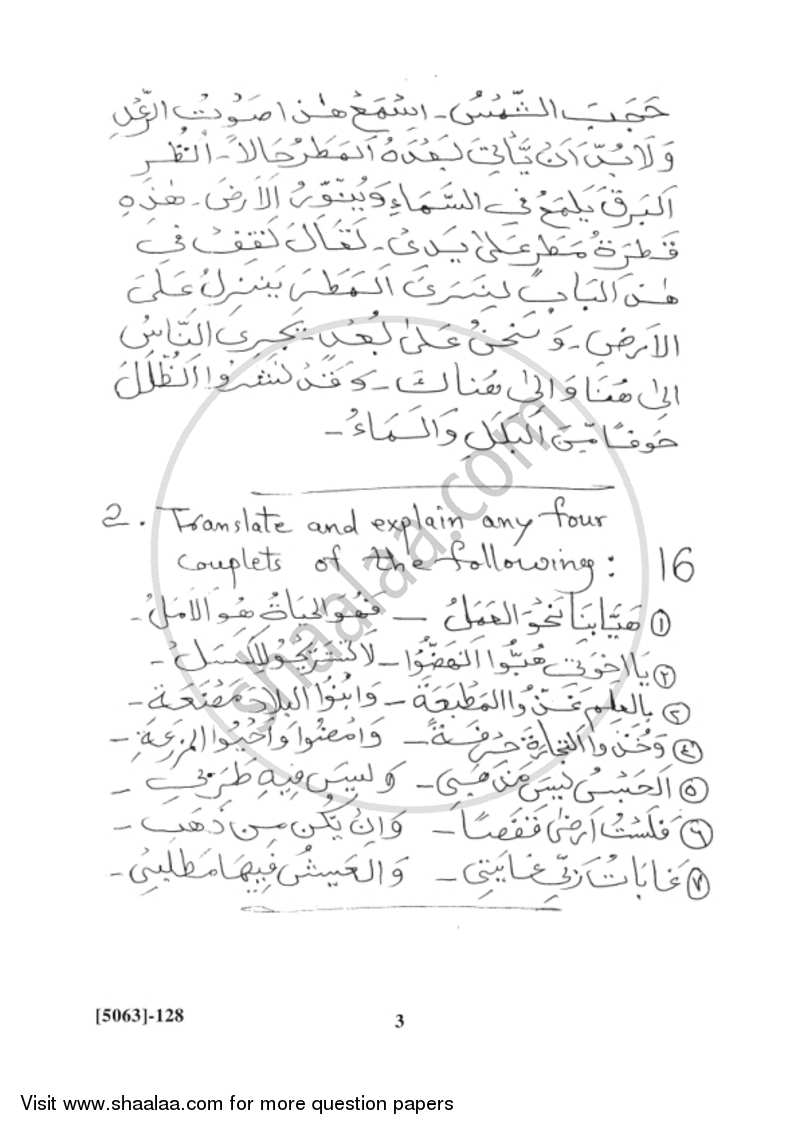 حَجَبَ الشَّمْسُ - اِسْمَعْ هٰذَا صَوْتُ الرَّعْدِ
وَلَا بُدَّ اَنْ يَّأْتِيَ بَعْدَهُ الْمَطَرُ حَالاً - اُنْظُرِ
الْبَرْقَ يَلْمَعُ فِي السَّمَاءِ وَيُنَوِّرُ الْاَرْضَ - هٰذِهِ
قَطْرَةُ مَطَرٍ عَلٰى يَدِىْ - تَعَالَ نَقِفْ فِيْ
هٰذَا الْبَابِ لِنَرَىَ الْمَطَرَ يَنْزِلُ عَلَىَ
الْاَرْضِ - وَنَحْنُ عَلٰى بُعْدٍ - يَجْرِىَ النَّاسُ
اِلىٰ هُنَا وَاِلىٰ هُنَاكَ - وَقَدْ نَشَرُوا الظُّلَلَ
خَوْفًا مِّنَ الْبَلَلِ وَالْمَاءُ -
2. Translate and explain any four
couplets of the following: 16
١ هَيَّا بِنَا نَحْوَ الْعَمَلُ — فَهُوَ الْحَيَاةُ هُوَ الْاَمَلُ -
٢ يَا اِخْوَتِيْ هُبُّوا انْهَضُوْا — لَا نَنْتَرِجُوْ لِلْكَسَلْ -
٣ بِالْعِلْمِ غَذُّوا الْمَطْبَعَةَ — وَابْنُوا الْبِلَادَ مَصْنَعَةَ -
٤ وَخُذُوا التِّجَارَةَ حِرْفَةً — وَامْضُوا وَاحْيُوا الْمَزْرَعَةِ -
٥ اَلْحَبْسُ لَيْسَ مَذْهَبِيْ — وَلَيْسَ فِيْهِ طَرَبِيْ -
٦ فَلَسْتُ اَرْضٰى قَفَصًا — وَاِنْ يَّكُنْ مِنْ ذَهَبٍ -
٧ غَابَاتُ رَبِّيْ غَايَتِيْ — وَالْعَيْشُ فِيْهَا مَطْلَبِيْ -
[5063]-128
3
shaalaa.com
Visit www.shaalaa.com for more question papers